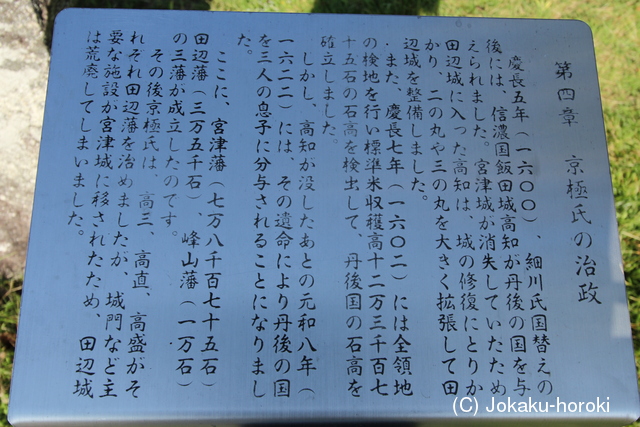 第四章　京極氏の治政
慶長五年（一六〇〇）、細川氏国替えの
後には、信濃国飯田城高知が丹後の国を与
えられました。宮津城が消失していたため
田辺城に入った高知は、城の修復にとりか
かり、二の丸や三の丸を大きく拡張して田
辺城を整備しました。
また、慶長七年（一六〇二）には全領地
の検地を行い標準米収穫高十二万三千百七
十五石の石高を検出して、丹後国の石高を
確立しました。
しかし、高知が没したあとの元和八年（
一六二二）には、その遺命により丹後の国
を三人の息子に分与されることになりまし
た。
ここに、宮津藩（七万八千百七十五石）
田辺藩（三万五千石）、峰山藩（一万石）
の三藩が成立したのてす。
その後京極氏は、高三、高直、高盛がそ
れぞれ田辺藩を治めましたが、城門など主
要な施設が宮津城に移されたため、田辺城
は荒廃してしまいました。
(C) Jokaku-horoki